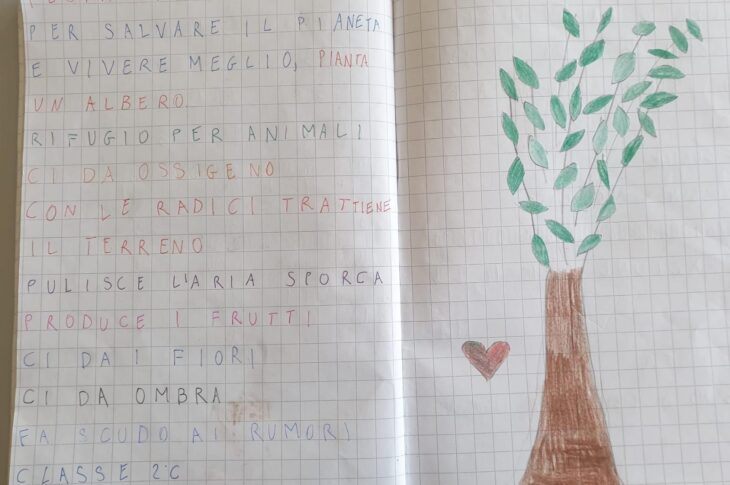 PER SALVARE IL PIANETA
E VIVERE MEGLIO, PIANTA
UN ALBERO.
RIFUGIO PER ANIMALI
CI DA OSSIGENO
CON LE RADICI TRATTIENE
IL TERRENO
PULISCE L'ARIA SPORCA
PRODUCE I FRUTTI
CI DA I FIORI
CI DA OMBRA
FA SCUDO AI RUMORI
CLASSE 2°C